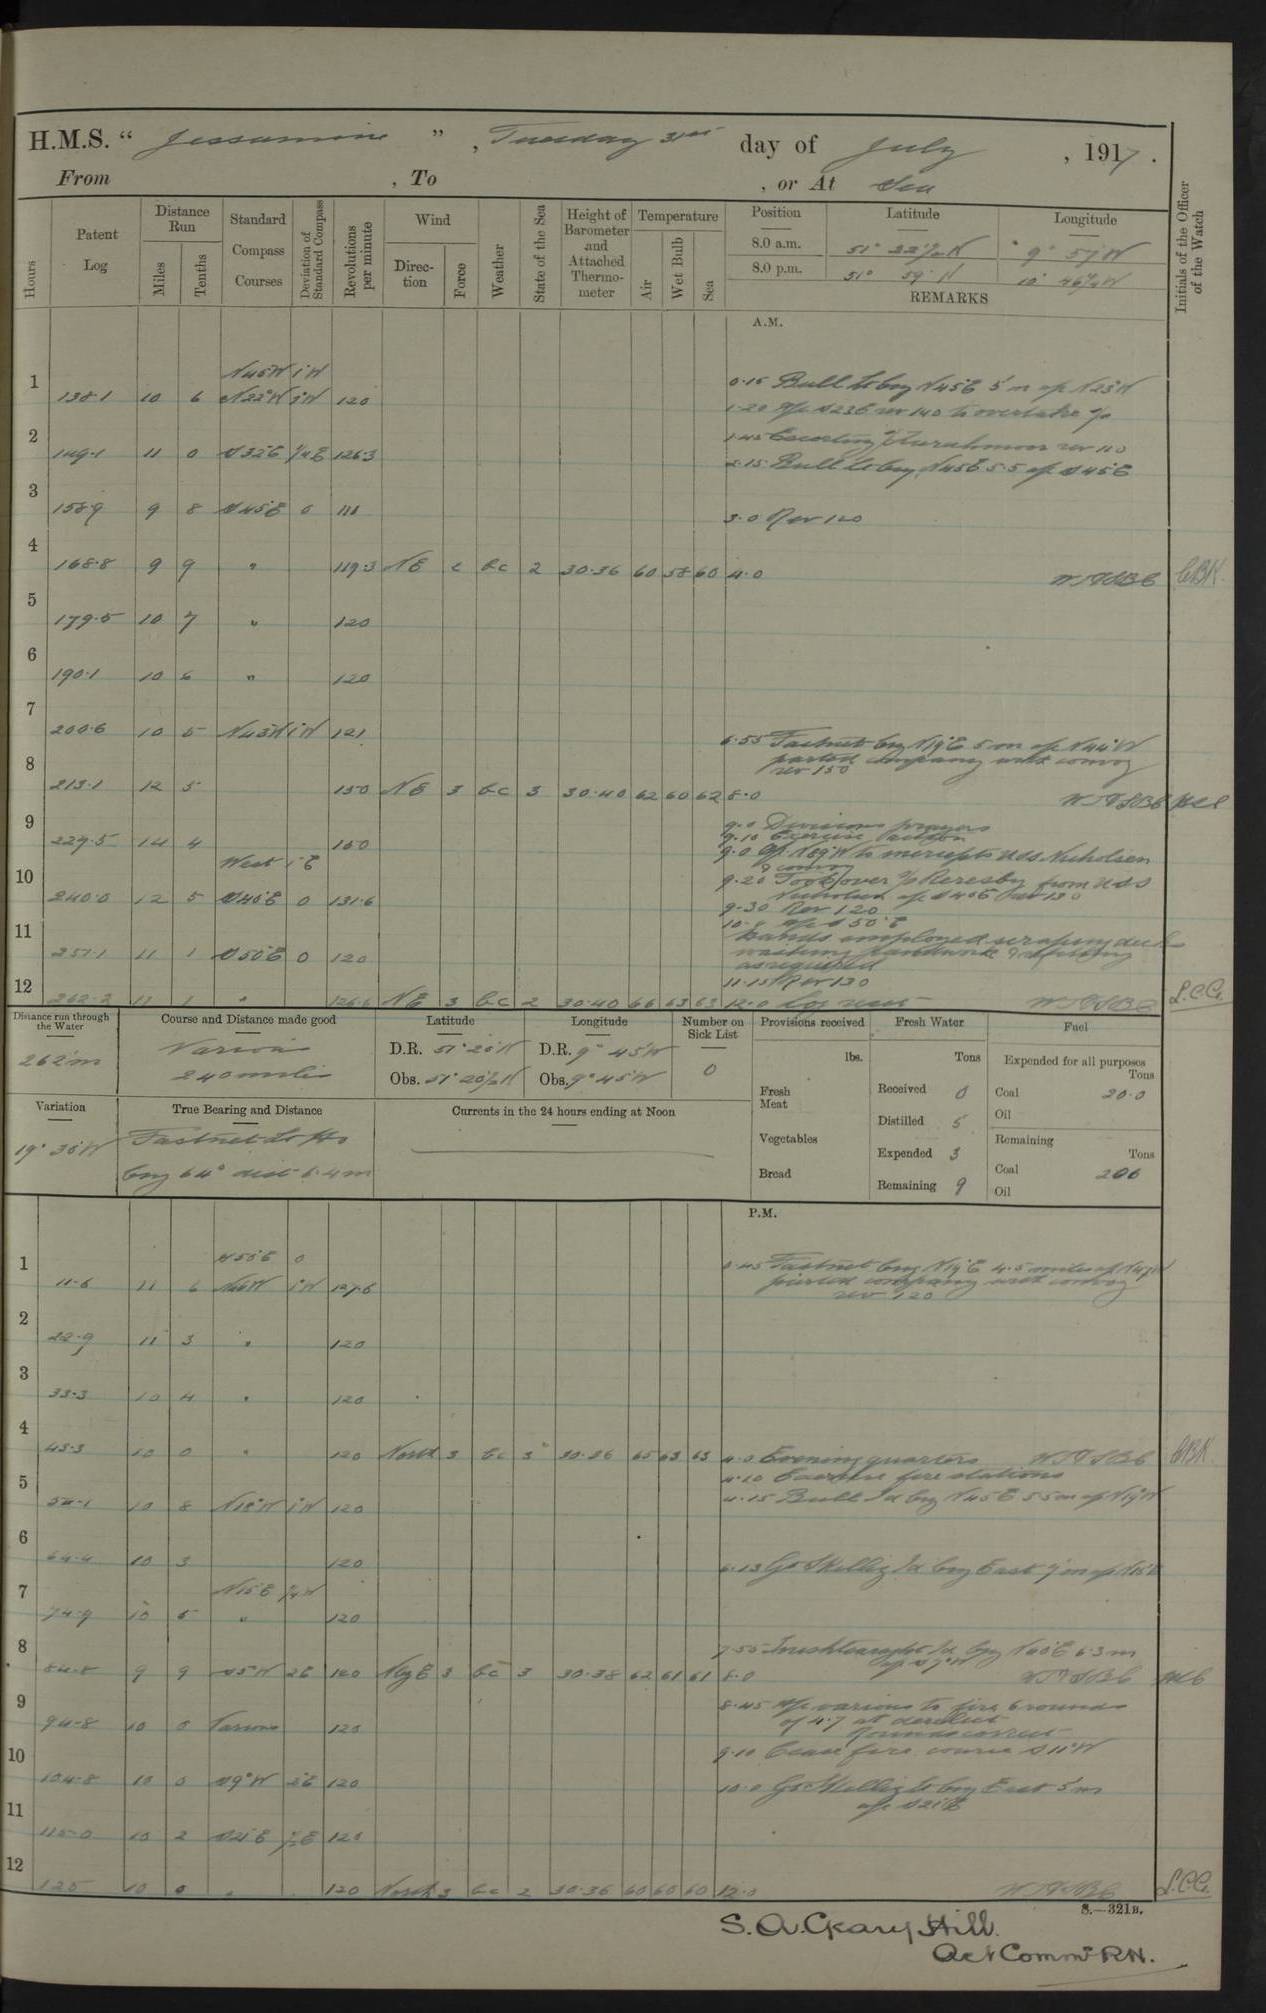 H.M.S. " Jessamine ", Tuesday 31st day of July, 1917.
From , To , or At Sea
Hours
Patent Log
Distance Run
Miles
Tenths
Standard Compass Courses
Deviation of Standard Compass
Revolutions per minute
Wind
Direction
Force
Weather
State of the Sea
Height of Barometer and Attached Thermometer
Temperature
Air
Wet Bulb
Sea
Position Latitude Longitude
8.0 a.m. 9° 57' W
8.0 p.m. 51° 59' N
REMARKS
Initials of the Officer of the Watch
A.M.
N45W 1°W
1 138.1 10 6 N22°W 1°W 120
0.15 Bull Lt brg N45E 5' m a/c N23°W
1.20 a/c S23E rev 140 to overtake
2 149.1 11 0 S32E 1/4E 126.3
1.45 Escorting rev 110
2.15 Bull Lt brg N45E 5.5 a/c S45E
3 158.9 9 8 S45E 0 111
3.0 Rev 120
4 168.8 9 9 " 119.3 NE 2 bc 2 30.36 60 58 60 4.0 CBK
5 179.5 10 7 " 120
6 190.1 10 6 " 120
7 200.6 10 5 N43W 1°W 121
6.55 Fastnet brg N19°E 5 m a/c N44°W
parted company with convoy
rev 150
8 213.1 12 5 150 NE 3 bc 3 30.40 62 60 62 8.0
9.0 Divisions prayers
9.10 Exercise action
9 229.5 14 4 150
9.0 a/c N89°W to intercept USS Nicholson
& convoy
West 1°E
10 240.0 12 5 S40E 0 131.6
9.20 Took over Reresby from USS
Nicholson a/c S40E rev 130
9.30 Rev 120
10. a/c S50°E
11 251.1 11 1 S50E 0 120
hands employed scraping deck
washing paintwork & refitting
as required
11.15 Rev 130
12 262.2 11 1 " 126.6 NE 3 bc 2 30.40 66 63 63 12.0 Log reset
Distance run through the Water
262 m
Course and Distance made good
Various
240 miles
Latitude
D.R. 51° 20' N
Obs. 51° 20½ N
Longitude
D.R. 9° 45' W
Obs. 9° 45' W
Number on Sick List
0
Provisions received
lbs.
Fresh Meat
Vegetables
Bread
Fresh Water
Tons
Received 0
Distilled 5
Expended 3
Remaining 9
Fuel
Expended for all purposes
Tons
Coal 20.0
Oil
Remaining
Tons
Coal 206
Oil
Variation
19° 30' W
True Bearing and Distance
Fastnet Lt Ho
brg 64° dist 6.4 m
Currents in the 24 hours ending at Noon
P.M.
S50E 0
1 11.6 11 6 1°W 127.6
0.45 Fastnet brg N19°E 4.5 miles a/c N47W
parted company with convoy
rev 120
2 22.9 11 3 " 120
3 33.3 10 4 " 120
4 43.3 10 0 " 120 North 3 bc 3 30.36 65 63 63 4.0 Evening quarters CBK
4.10 Exercise fire stations
5 54.1 10 8 N18°W 1°W 120
4.15 Bull Id brg N45E 5.5 m a/c N19°W
6 64.4 10 3 120
6.13 Gt Skellig Id brg East 7' m a/c N15E
7 N15E 1/4W
74.9 10 5 " 120
7.55 Inishtearaght Id brg N60E 6.3 m
a/c S7°W
8 84.8 9 9 S5W 2E 120 NbyE 3 bc 3 30.38 62 61 61 8.0
8.45 a/c various to fire 6 rounds
of 4.7 at derelict
Rounds correct
9 94.8 10 0 Various 120
9.10 Cease fire. course S11°W
10 104.8 10 0 S9°W 2E 120
10.0 Gt Skellig Lt brg East 5' m
a/c S21E
11 115.0 10 2 S21E ½E 120
12 125 10 0 " 120 North 3 bc 2 30.36 60 60 60 12.0
S.—321B.
S. A. Geary Hill.
Act Commr RN.